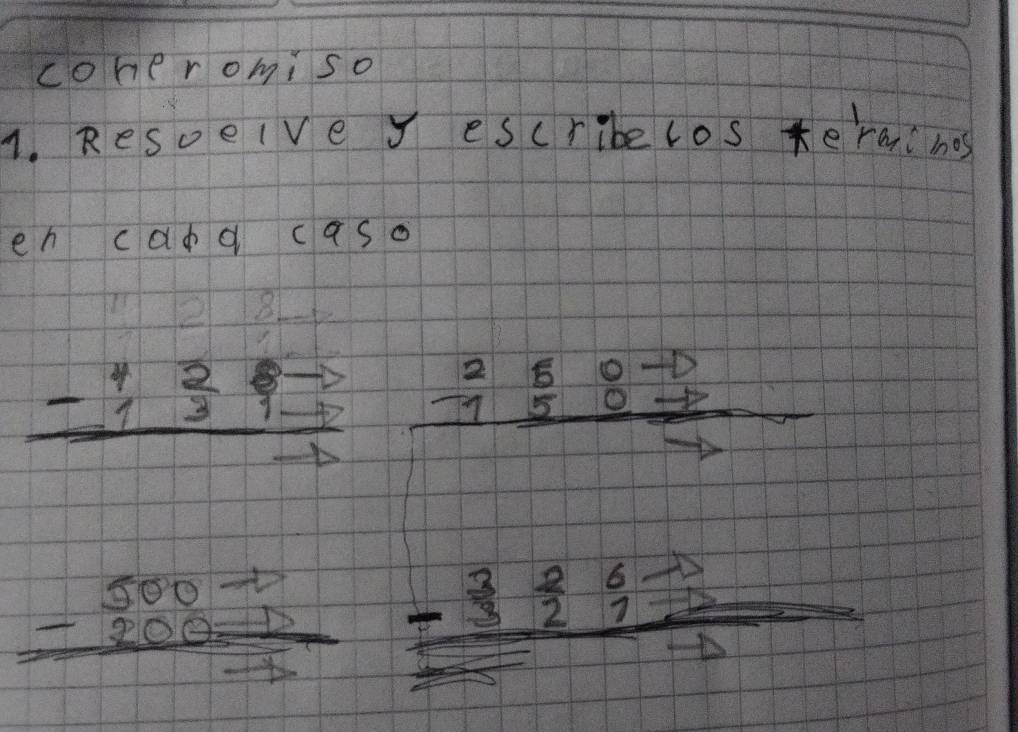 comeromiso
1. Resuelve y escribe los términos
en cada caso
4 2 8 → 2 5 0 →
- 1 3 1 → - 1 5 0 →
→ →
500 → 3 2 6 →
- 200 → - 3 2 1 →
→ →